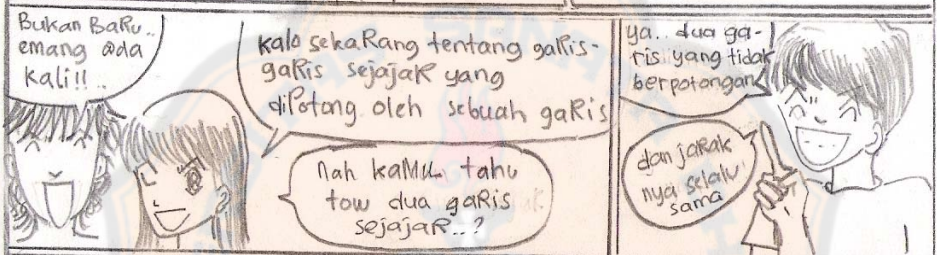 Bukan BaRu..
emang ada
kali!!..
kalo sekaRang tentang gaRis-
gaRis sejajaR yang
dipotong oleh sebuah gaRis
Nah kaMu tahu
tow dua gaRis
sejajaR..?
ya.. dua ga-
ris yang tidak
berpotongan
dan jaRak
nya selalu
sama